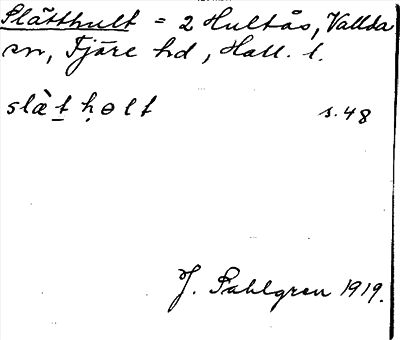 Slätthult = 2 Hultås, Vallda
sn, Fjäre hd, Hall. l.
slæ̀t̲ ḥɵlt s. 48
J. Sahlgren 1919.